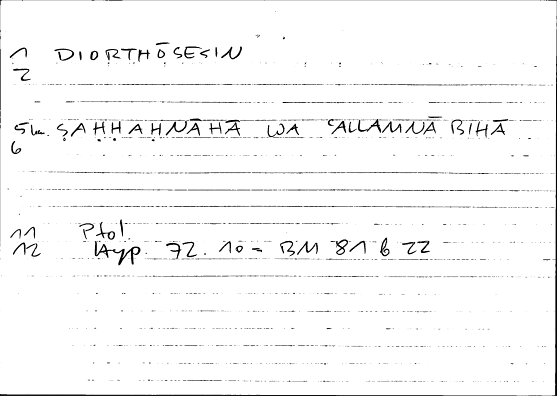 1 DIORTHŌSESIN
2
5 ṢAḤḤAḤNĀHĀ WA ʿALLAMNĀ BIHĀ
6
11 Ptol.
12 Hyp. 72. 10 = BM 81 b 22